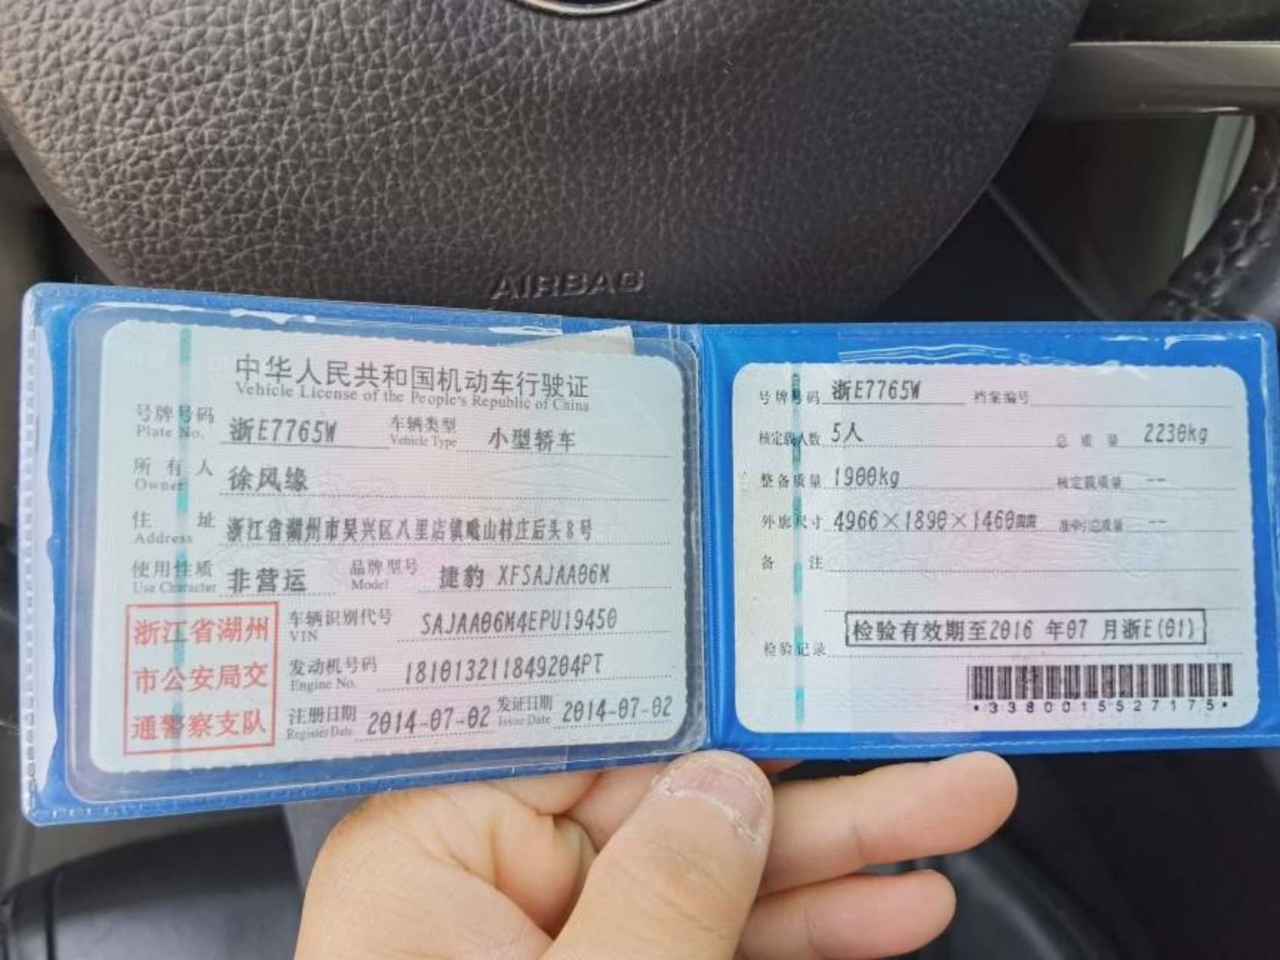 AIRBAG
中华人民共和国机动车行驶证
Vehicle License of the People's Republic of China
号牌号码 浙E7765W 车辆类型 小型轿车
Plate No. Vehicle Type
所有人 徐风缘
Owner
住址 浙江省湖州市吴兴区八里店镇戚山村庄后头8号
Address
使用性质 非营运 品牌型号 捷豹 XFSAJAA06M
Use Character Model
浙江省湖州
市公安局交
通警察支队
车辆识别代号 SAJAA06M4EPU19450
VIN
发动机号码 181013211849204PT
Engine No.
注册日期 2014-07-02 发证日期 2014-07-02
Register Date Issue Date
号牌号码 浙E7765W 档案编号
核定载人数 5人 总质量 2230kg
整备质量 1900kg 核定载质量 --
外廓尺寸 4966×1890×1460mm 准牵引总质量 --
备注
检验记录 检验有效期至2016 年07 月浙E(01)
*3380015527175*